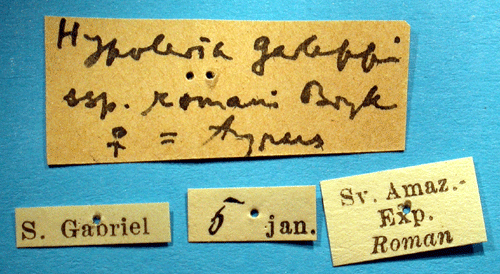 Hypoleria garleppi
ssp. romani Bryk
♀ = Typus
S. Gabriel
5 jan.
Sv. Amaz.-
Exp.
Roman